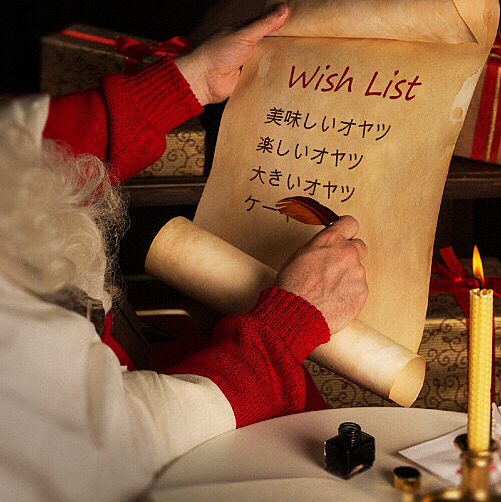 Wish List
美味しいオヤツ
楽しいオヤツ
大きいオヤツ